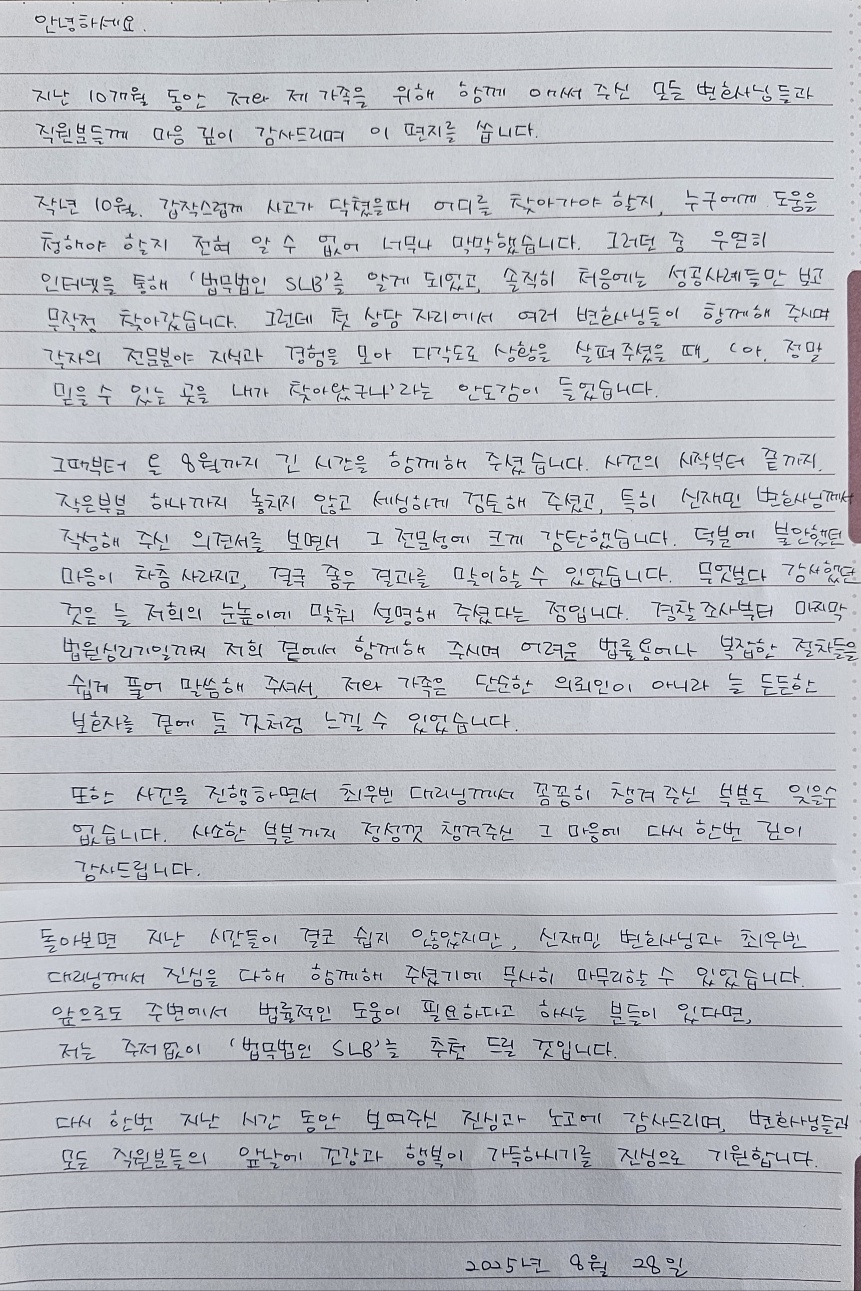 안녕하세요.
지난 10개월 동안 저와 제 가족을 위해 함께 애써 주신 모든 변호사님들과
직원분들께 마음 깊이 감사드리며 이 편지를 씁니다.
작년 10월. 갑작스럽게 사고가 닥쳤을때 어디를 찾아가야 할지, 누구에게 도움을
청해야 할지 전혀 알 수 없어 너무나 막막했습니다. 그러던 중 우연히
인터넷을 통해 '법무법인 SLB'를 알게 되었고, 솔직히 처음에는 성공사례들만 보고
무작정 찾아갔습니다. 그런데 첫 상담 자리에서 여러 변호사님들이 함께해 주시며
각자의 전문분야 지식과 경험을 모아 다각도로 상황을 살펴주셨을 때, '아, 정말
믿을 수 있는 곳을 내가 찾아왔구나'라는 안도감이 들었습니다.
그때부터 올 8월까지 긴 시간을 함께해 주셨습니다. 사건의 시작부터 끝까지.
작은부분 하나까지 놓치지 않고 세심하게 검토해 주셨고, 특히 신재민 변호사님께서
작성해 주신 의견서를 보면서 그 전문성에 크게 감탄했습니다. 덕분에 불안했던
마음이 차츰 사라지고, 결국 좋은 결과를 맞이할 수 있었습니다. 무엇보다 감사했던
것은 늘 저희의 눈높이에 맞춰 설명해 주셨다는 점입니다. 경찰조사부터 마지막
법원심리기일까지 저희 곁에서 함께해 주시며 어려운 법률용어나 복잡한 절차들을
쉽게 풀어 말씀해 주셔서, 저와 가족은 단순한 의뢰인이 아니라 늘 든든한
보호자를 곁에 둔 것처럼 느낄 수 있었습니다.
또한 사건을 진행하면서 최우빈 대리님께서 꼼꼼히 챙겨 주신 부분도 잊을수
없습니다. 사소한 부분까지 정성껏 챙겨주신 그 마음에 다시 한번 깊이
감사드립니다.
돌아보면 지난 시간들이 결코 쉽지 않았지만, 신재민 변호사님과 최우빈
대리님께서 진심을 다해 함께해 주셨기에 무사히 마무리할 수 있었습니다.
앞으로도 주변에서 법률적인 도움이 필요하다고 하시는 분들이 있다면,
저는 주저없이 '법무법인 SLB'를 추천 드릴 것입니다.
다시 한번 지난 시간 동안 보여주신 진심과 노고에 감사드리며, 변호사님들과
모든 직원분들의 앞날에 건강과 행복이 가득하시기를 진심으로 기원합니다.
2025년 8월 28일